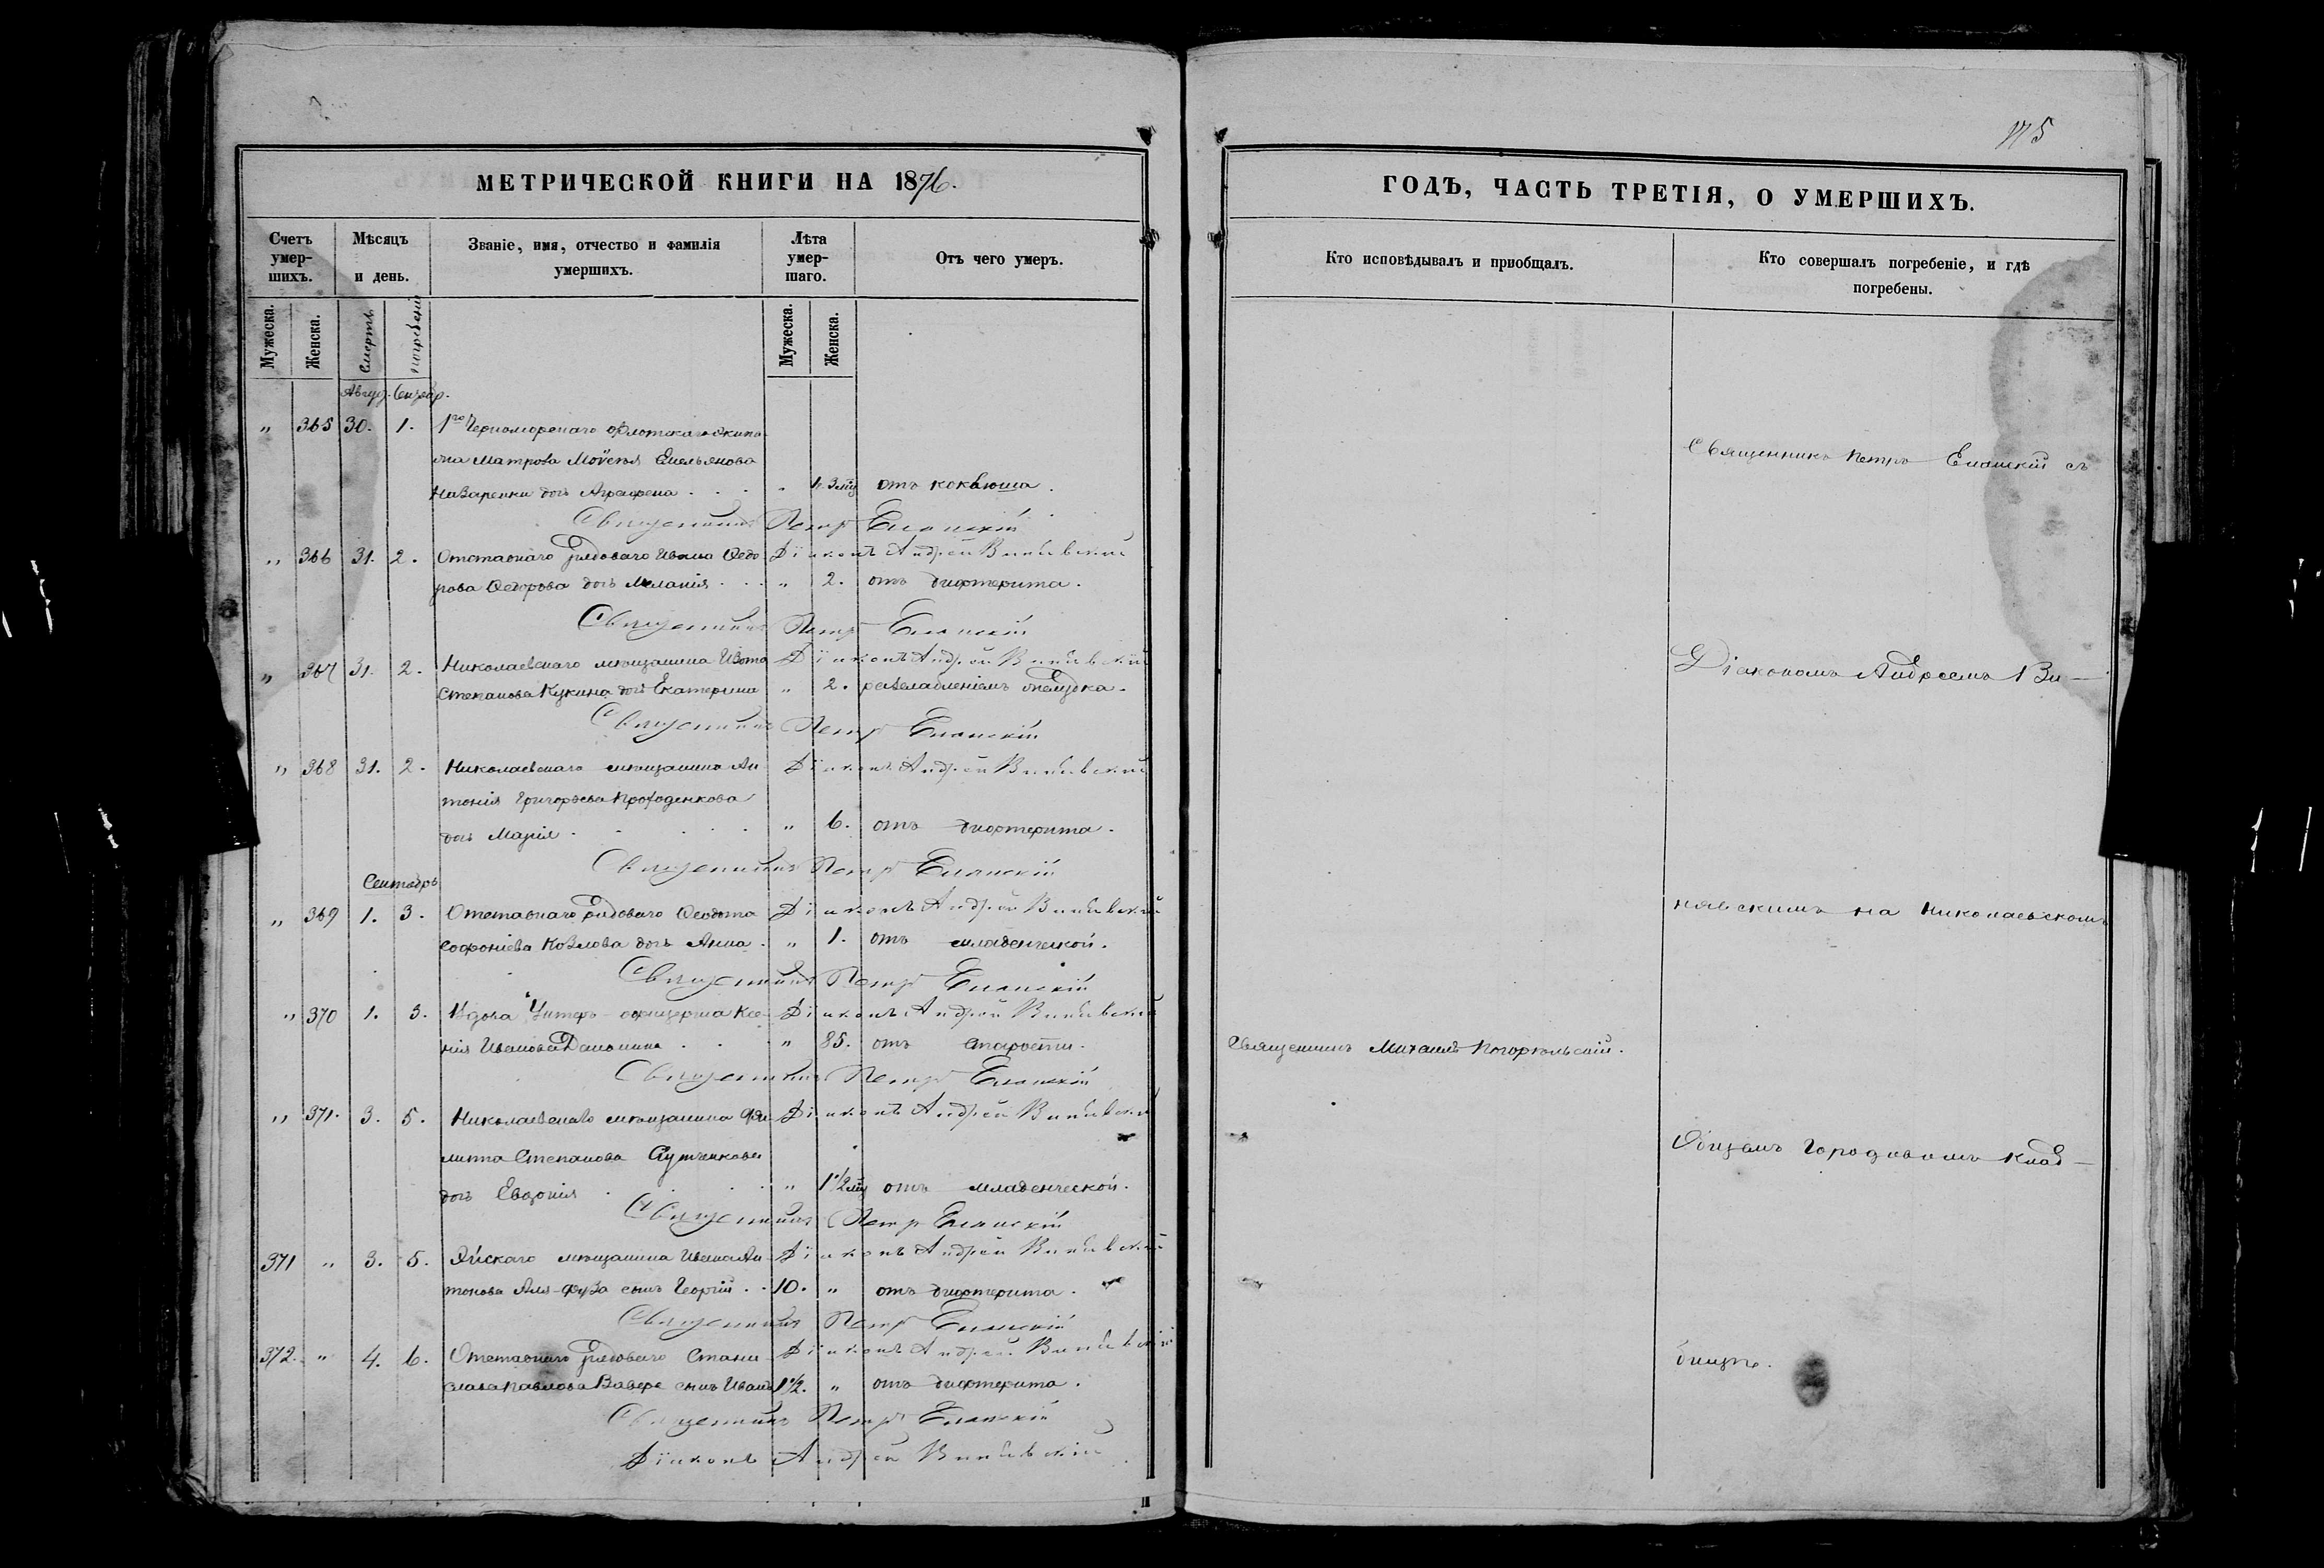 175
МЕТРИЧЕСКОЙ КНИГИ НА 1876.
Счетъ умер-шихъ.
Мѣсяцъ и день.
Званіе, имя, отчество и фамилія умершихъ.
Лѣта умер-шаго.
Отъ чего умеръ.
Мужеска.
Женска.
Смерти
погребенія
Мужеска.
Женска.
Август. Сентябр.
„ 365 30. 1. 1го Черноморскаго флотскаго экипа-
жа матроса Моѵсея Емельянова
Назаренки дочь Агрефена . . . „ 1. 3 мц отъ коклюша.
Священникъ Петръ Еланскій
„ 366 31. 2. Отставнаго рядоваго Ивана Ѳедо- Діаконъ Андрей
рова Ѳедорова дочь Меланія . . . „ 2. отъ дифтерита.
Священникъ Петръ Еланскій
„ 367 31. 2. Николаевскаго мѣщанина Діаконъ Андрей
Степанова Кукина дочь Екатерина „ 2. желудка.
Священникъ Петръ Еланскій
„ 368 31. 2. Николаевскаго мѣщанина Ан- Діаконъ Андрей
тонія Григорьева
дочь Марія . . . . „ 6. отъ дифтерита.
Священникъ Петръ Еланскій
Сентябрь
„ 369 1. 3. Отставнаго рядоваго Ѳеодота Діаконъ Андрей
Софоніева Козлова дочь Анна . „ 1. отъ младенческой.
Священникъ Петръ Еланскій
„ 370 1. 3. Вдова Унтеръ-офицерша Ксе- Діаконъ Андрей
нія Иванова . . „ 85. отъ старости.
Священникъ Петръ Еланскій
„ 371. 3. 5. Николаевскаго мѣщанина Фи- Діаконъ Андрей
липпа Степанова
дочь Евдокія . . . „ 1 1/2 мц отъ младенческой.
Священникъ Петръ Еланскій
371 „ 3. 5. мѣщанина Ивана Ан- Діаконъ Андрей
тонова сынъ Георгій . . 10. „ отъ дифтерита.
Священникъ Петръ Еланскій
372. „ 4. 6. Отставнаго рядоваго Стани- Діаконъ Андрей
слава Павлова сынъ Иванъ 1 1/2. „ отъ дифтерита.
Священникъ Петръ Еланскій
Діаконъ Андрей
ГОДЪ, ЧАСТЬ ТРЕТІЯ, О УМЕРШИХЪ.
Кто исповѣдывалъ и пріобщалъ.
Кто совершалъ погребеніе, и гдѣ погребены.
Священникъ Петръ Еланскій съ
Діакономъ Андреемъ Ви—
нявскимъ на Николаевскомъ
Священникъ Михаилъ Погорѣльскій.
Общемъ Городовомъ клад—
бищѣ.